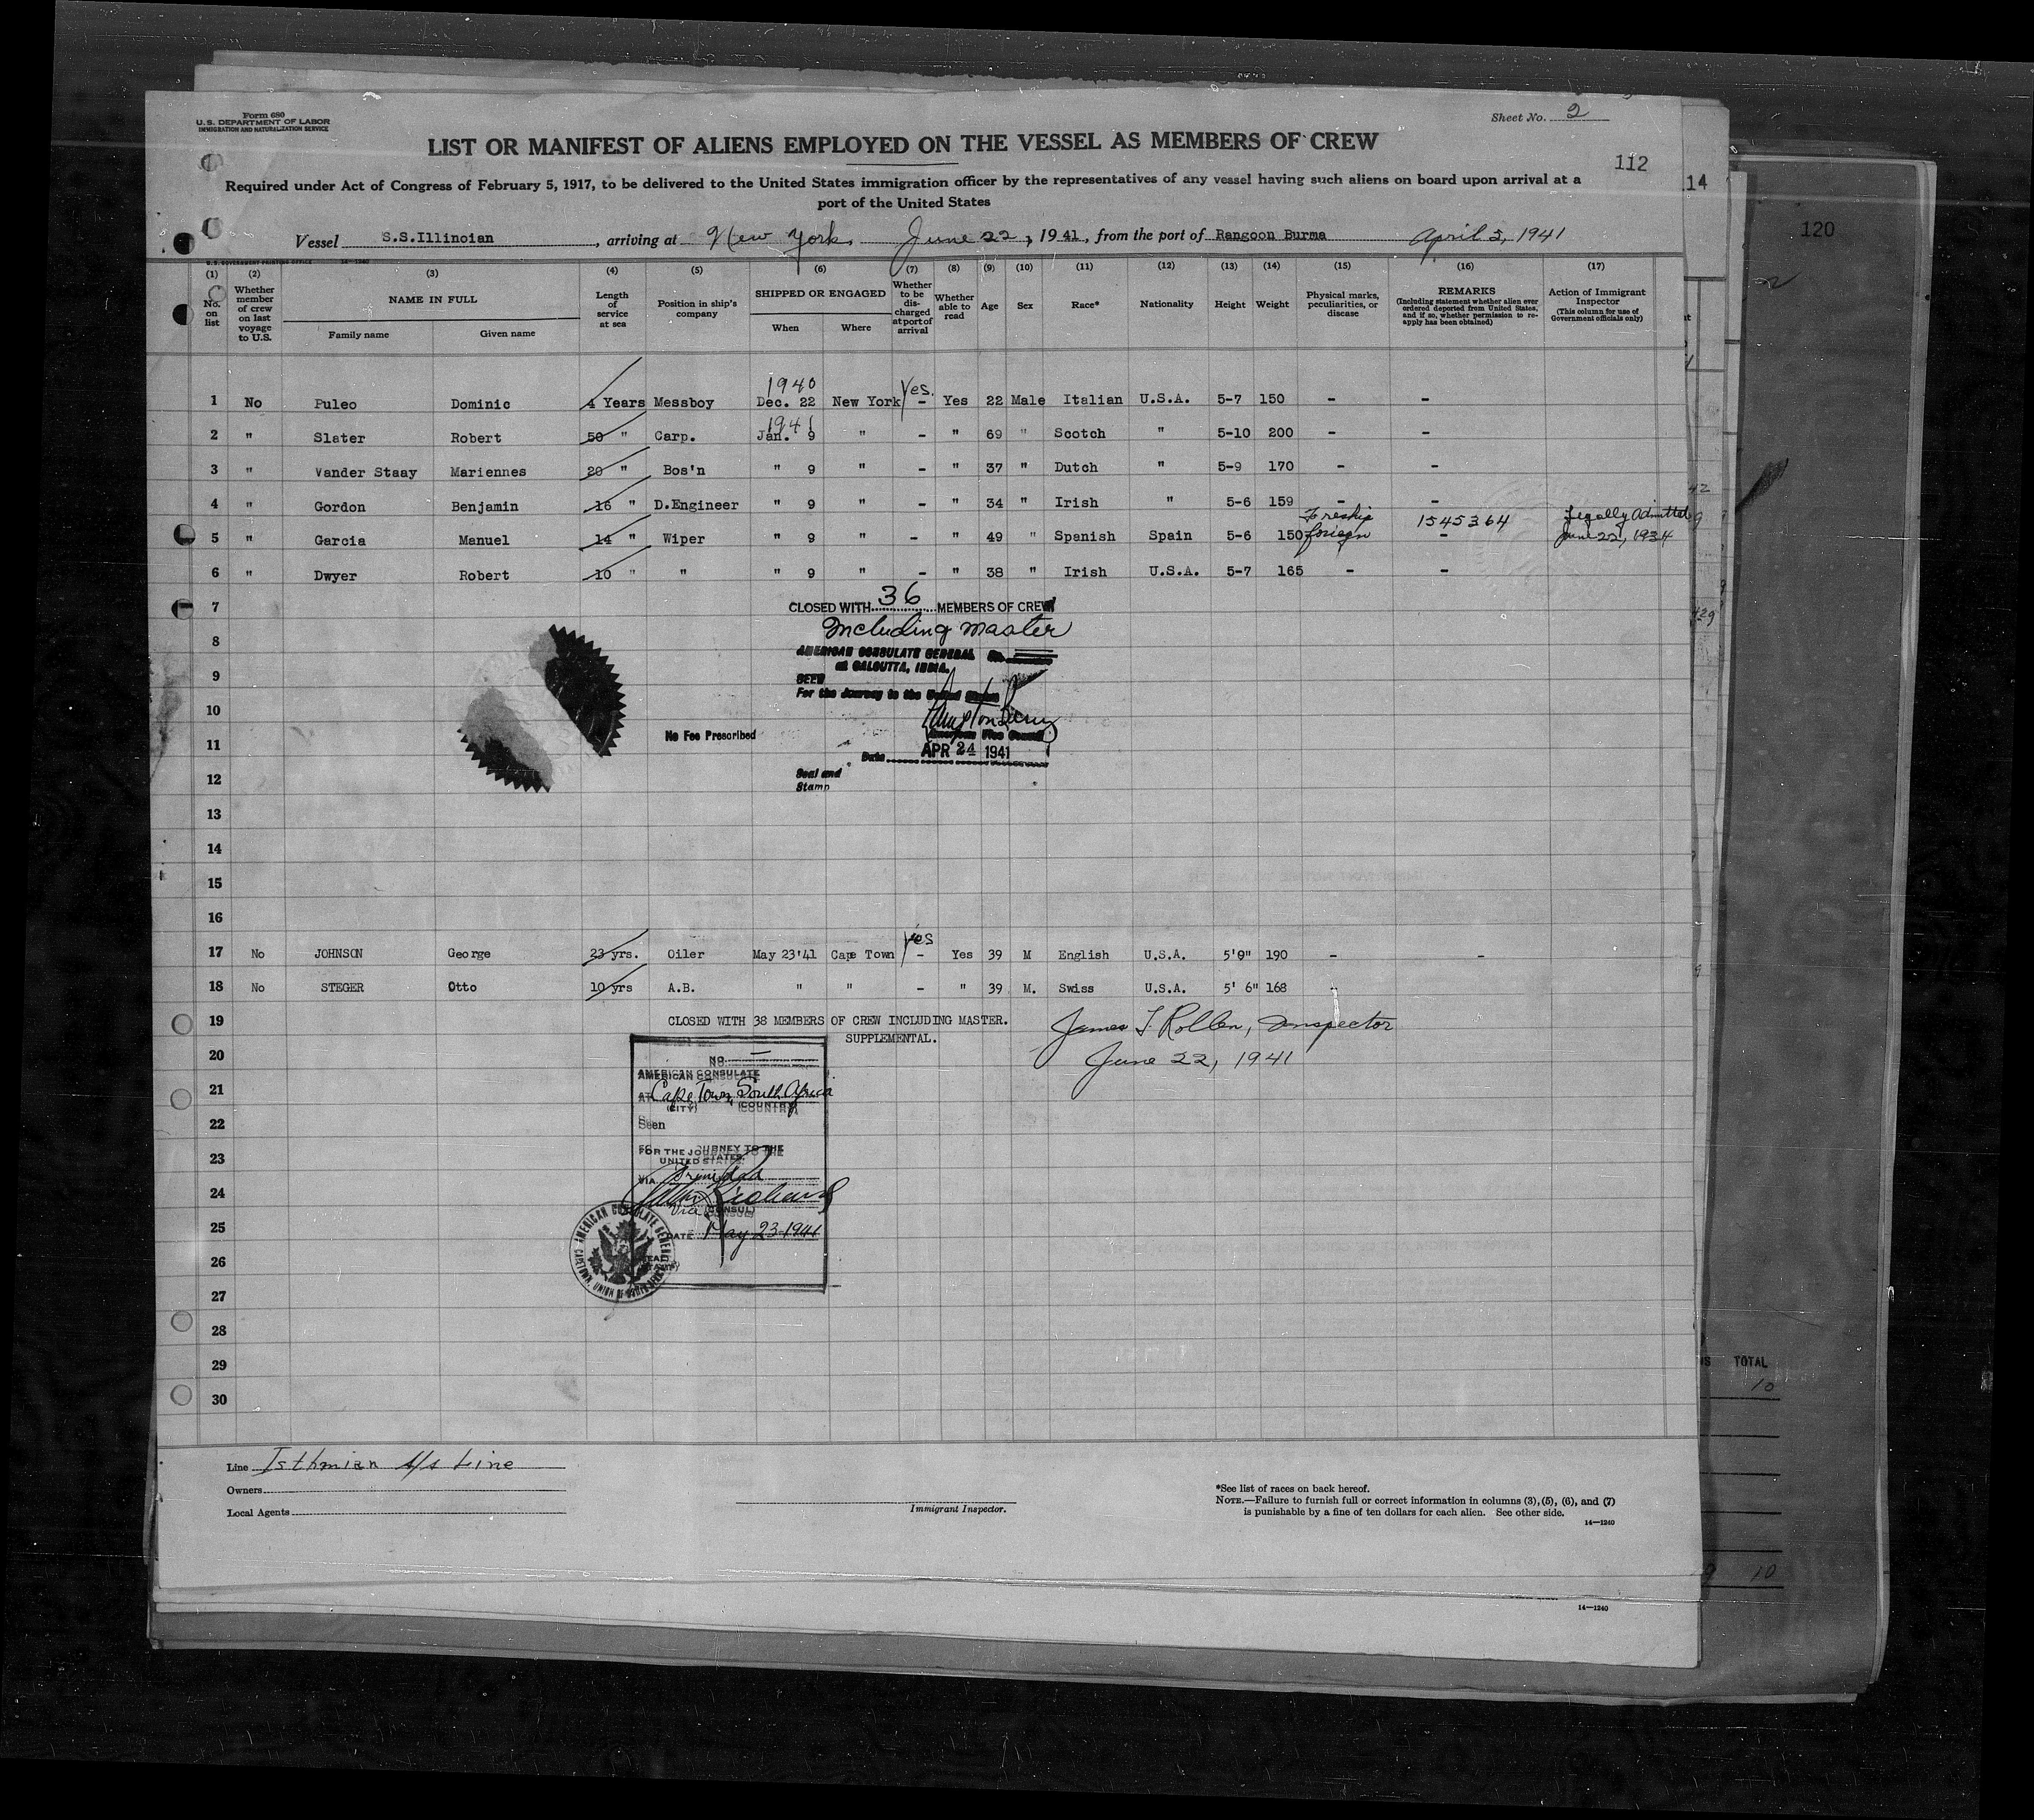 Form 680
U.S. DEPARTMENT OF LABOR
IMMIGRATION AND NATURALIZATION SERVICE
Sheet No. 2
LIST OR MANIFEST OF ALIENS EMPLOYED ON THE VESSEL AS MEMBERS OF CREW
112
Required under Act of Congress of February 5, 1917, to be delivered to the United States immigration officer by the representatives of any vessel having such aliens on board upon arrival at a
port of the United States
114
120
Vessel S.S.Illinoian, arriving at New York, June 22, 1941, from the port of Rangoon Burma April 5, 1941
U.S. GOVERNMENT PRINTING OFFICE 14-1240
(1) (2) (3) (4) (5) (6) (7) (8) (9) (10) (11) (12) (13) (14) (15) (16) (17)
No. on list
Whether member of crew on last voyage to U.S.
NAME IN FULL
Family name Given name
Length of service at sea
Position in ship's company
SHIPPED OR ENGAGED
When Where
Whether to be discharged at port of arrival
Whether able to read
Age
Sex
Race*
Nationality
Height
Weight
Physical marks, peculiarities, or disease
REMARKS
(Including statement whether alien ever ordered deported from United States, and if so, whether permission to reapply has been obtained)
Action of Immigrant Inspector
(This column for use of Government officials only)
1940 Yes.
1 No Puleo Dominic 4 Years Messboy Dec. 22 New York - Yes 22 Male Italian U.S.A. 5-7 150 - -
1941
2 " Slater Robert 50 " Carp. Jan. 9 " - " 69 " Scotch " 5-10 200 - -
3 " Vander Staay Mariennes 20 " Bos'n " 9 " - " 37 " Dutch " 5-9 170 - -
4 " Gordon Benjamin 16 " D.Engineer " 9 " - " 34 " Irish " 5-6 159 - -
1545364 Legally Admitted
5 " Garcia Manuel 14 " Wiper " 9 " - " 49 " Spanish Spain 5-6 150 foriegn - June 22, 1934
6 " Dwyer Robert 10 " " " 9 " - " 38 " Irish U.S.A. 5-7 165 - -
7 CLOSED WITH 36 MEMBERS OF CREW
8 Including Master
AMERICAN CONSULATE GENERAL No.
9 at CALCUTTA, INDIA.
SEEN
For the Journey to the United States
10
No Fee Prescribed
American Vice Consul
11 Date APR 24 1941
12 Seal and
Stamp
13
14
15
16
yes
17 No JOHNSON George 23 yrs. Oiler May 23'41 Cape Town - Yes 39 M English U.S.A. 5'9" 190 - -
18 No STEGER Otto 10 yrs A.B. " " - " 39 M. Swiss U.S.A. 5' 6" 168 -
19 CLOSED WITH 38 MEMBERS OF CREW INCLUDING MASTER.
James J. Rollen, Inspector
SUPPLEMENTAL.
20 June 22, 1941
NO. —
AMERICAN CONSULATE
21 AT Cape Town, South Africa
(CITY) (COUNTRY)
22 Seen
23 FOR THE JOURNEY TO THE
UNITED STATES.
VIA Trinidad
24
Vice CONSUL
25 DATE May 23-1941
26 SEAL
27
AMERICAN CONSULATE GENERAL
CAPETOWN, UNION OF SOUTH AFRICA
28
29
30
TOTAL
10
10
Line Isthmian S/s Line
Owners
Local Agents
Immigrant Inspector.
*See list of races on back hereof.
NOTE.—Failure to furnish full or correct information in columns (3), (5), (6), and (7)
is punishable by a fine of ten dollars for each alien. See other side.
14—1240
14—1240